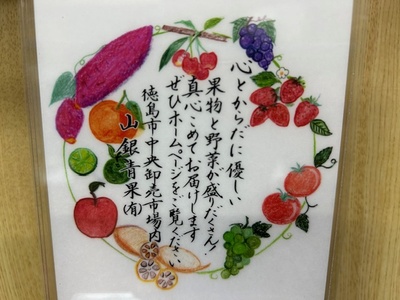 心とからだに優しい
果物と野菜が盛りだくさん!
真心こめてお届けします
ぜひホームページをご覧ください
徳島市中央卸売市場内
山銀青果(有)